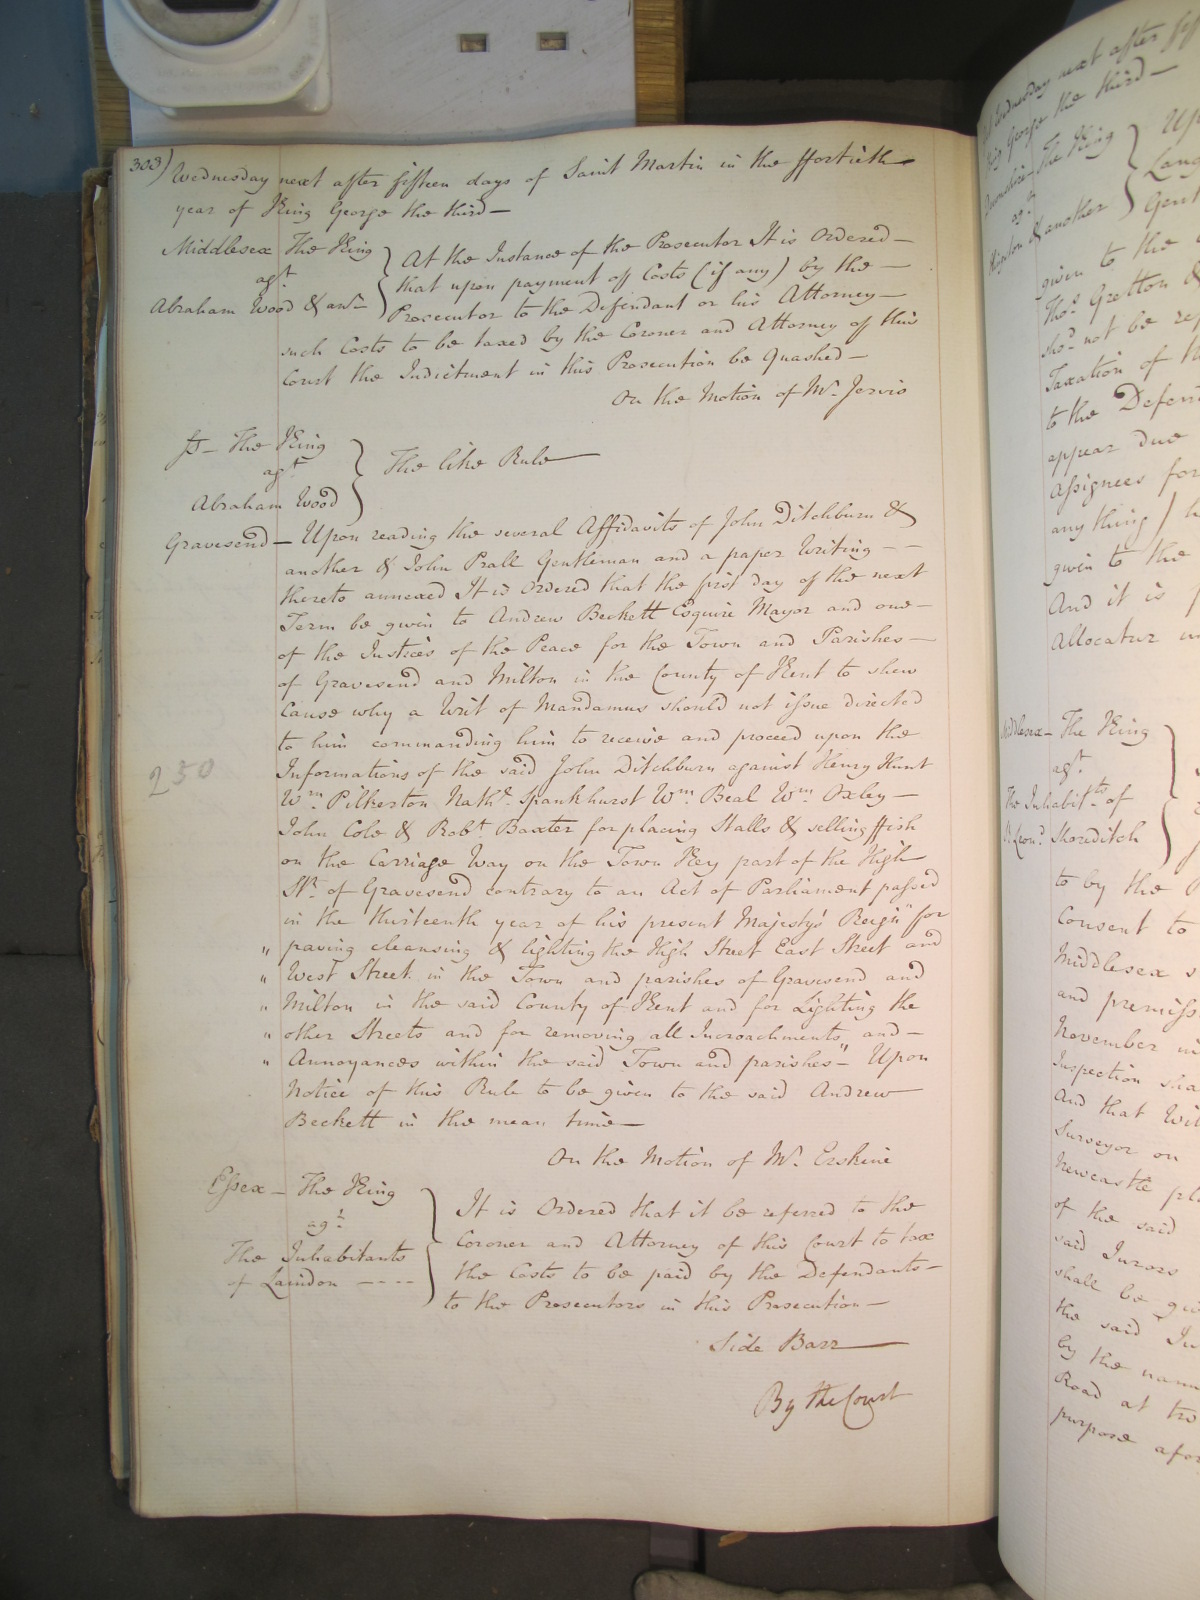 303)
Wednesday next after fifteen days of Saint Martin in the ffortieth
year of King George the third—
Middlesex The King
agt
Abraham Wood & anr
At the Instance of the Prosecutor It is Ordered—
that upon payment of Costs (if any) by the —
Prosecutor to the Defendant or his Attorney—
such Costs to be taxed by the Coroner and Attorney of this
Court the Indictment in this Prosecution be Quashed—
On the Motion of Mr. Jervis
The King
agt
Abraham Wood
The like Rule—
Gravesend— Upon reading the several Affidavits of John Ditchburn &
another & John Prall Gentleman and a paper Writing - -
thereto annexed It is Ordered that the first day of the next
Term be given to Andrew Beckett Esquire Mayor and one—
of the Justices of the Peace for the Town and Parishes—
of Gravesend and Milton in the County of Kent to shew
Cause why a Writ of Mandamus should not issue directed
to him commanding him to receive and proceed upon the
Informations of the said John Ditchburn against Henry Hunt
Wm. Pilkerton Nathl. Spankhurst Wm. Beal Wm. Oxley—
John Cole & Robt. Baxter for placing Stalls & selling ffish
on the Carriage Way on the Town Key part of the High
Str. of Gravesend contrary to an Act of Parliament passed
in the thirteenth year of his present Majesty's Reign "for
" paving cleansing & lighting the High Street East Street and
" West Street in the Town and parishes of Gravesend and
" Milton in the said County of Kent and for Lighting the
" other Streets and for removing all Incroachments and—
" Annoyances within the said Town and parishes"— Upon
Notice of this Rule to be given to the said Andrew
Beckett in the mean time—
On the Motion of Mr. Erskine
Essex— The King
agt.
The Inhabitants
of Laindon ----
It is Ordered that it be referred to the
Coroner and Attorney of this Court to tax
the Costs to be paid by the Defendants—
to the Prosecutors in this Prosecution—
Side Barr—
By the Court
250
Wednesday next after
King George the third—
Devonshire The King
agt
& another
given to the
Thos. Gretton &
shod. not be
Taxation of
to the
appear due
Assignees for
any thing
given to the
And it is
Allocatur
The King
agt.
The Inhabitts. of
Shoreditch
to by the
Consent to
Middlesex
and
November
Inspection
And that
Surveyor on
Newcastle
of the said
said Jurors
shall be
the said
by the
Road at
purpose